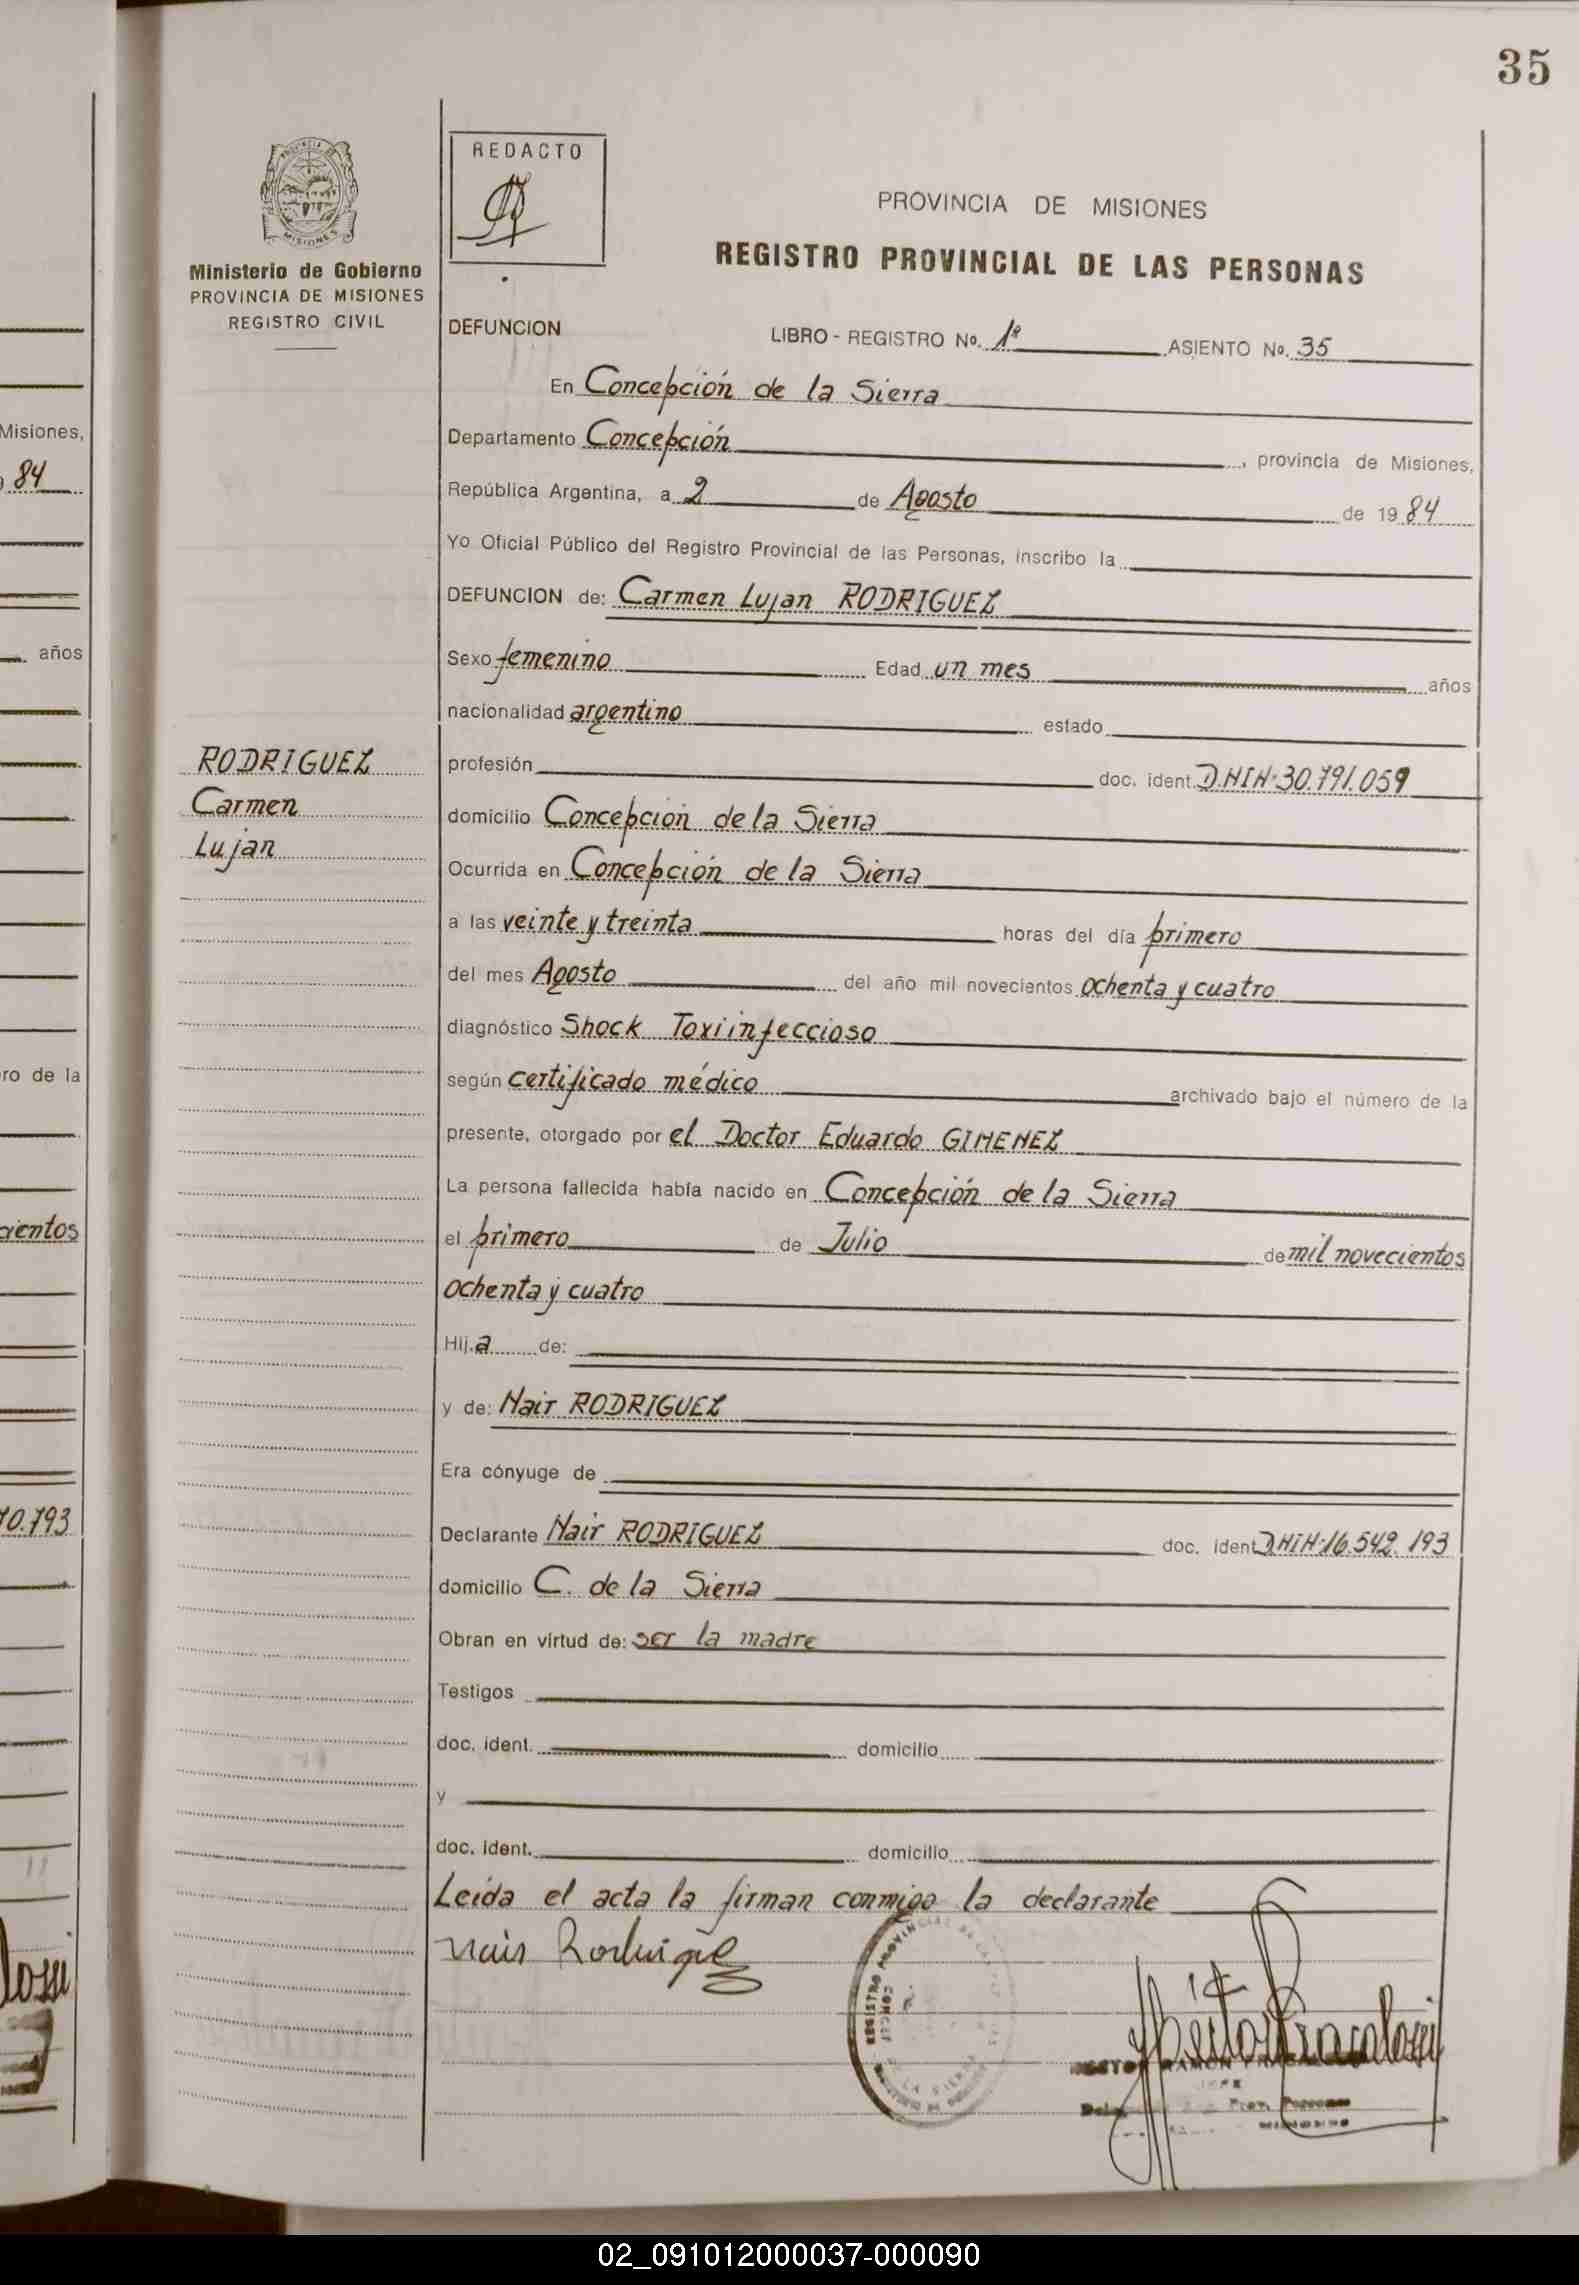 35
REDACTO
PROVINCIA DE MISIONES
REGISTRO PROVINCIAL DE LAS PERSONAS
MISIONES
Ministerio de Gobierno
PROVINCIA DE MISIONES
REGISTRO CIVIL
DEFUNCION LIBRO - REGISTRO No. 1º ASIENTO No. 35
En Concepción de la Sierra
Departamento Concepción, provincia de Misiones,
República Argentina, a 2 de Agosto de 1984
Yo Oficial Público del Registro Provincial de las Personas, inscribo la
DEFUNCION de: Carmen Lujan RODRIGUEZ
Sexo femenino Edad un mes años
nacionalidad argentino estado
RODRIGUEZ
Carmen
Lujan
profesión doc. ident. D.N.I.N: 30.791.059
domicilio Concepción de la Sierra
Ocurrida en Concepción de la Sierra
a las veinte y treinta horas del día primero
del mes Agosto del año mil novecientos ochenta y cuatro
diagnóstico Shock Toxiinfeccioso
según certificado médico archivado bajo el número de la
presente, otorgado por el Doctor Eduardo GIMENEZ
La persona fallecida había nacido en Concepción de la Sierra
el primero de Julio de mil novecientos
ochenta y cuatro
Hija de:
y de: Nair RODRIGUEZ
Era cónyuge de
Declarante Nair RODRIGUEZ doc. ident D.N.I.N: 16.542.193
domicilio C. de la Sierra
Obran en virtud de: ser la madre
Testigos
doc. ident. domicilio
y
doc. ident. domicilio
Leída el acta la firman conmigo la declarante
Nair Rodriguez
REGISTRO PROVINCIAL DE LAS
DE LA SIERRA
Misiones,
84
años
ro de la
cientos
70.793
02_091012000037-000090